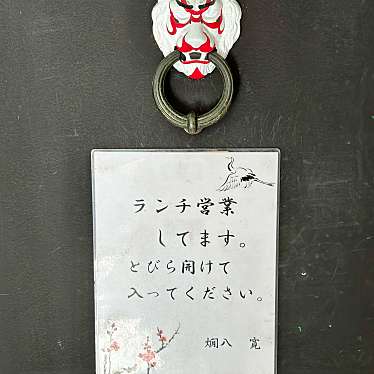 ランチ営業
してます。
とびら開けて
入ってください。
燗八 寛